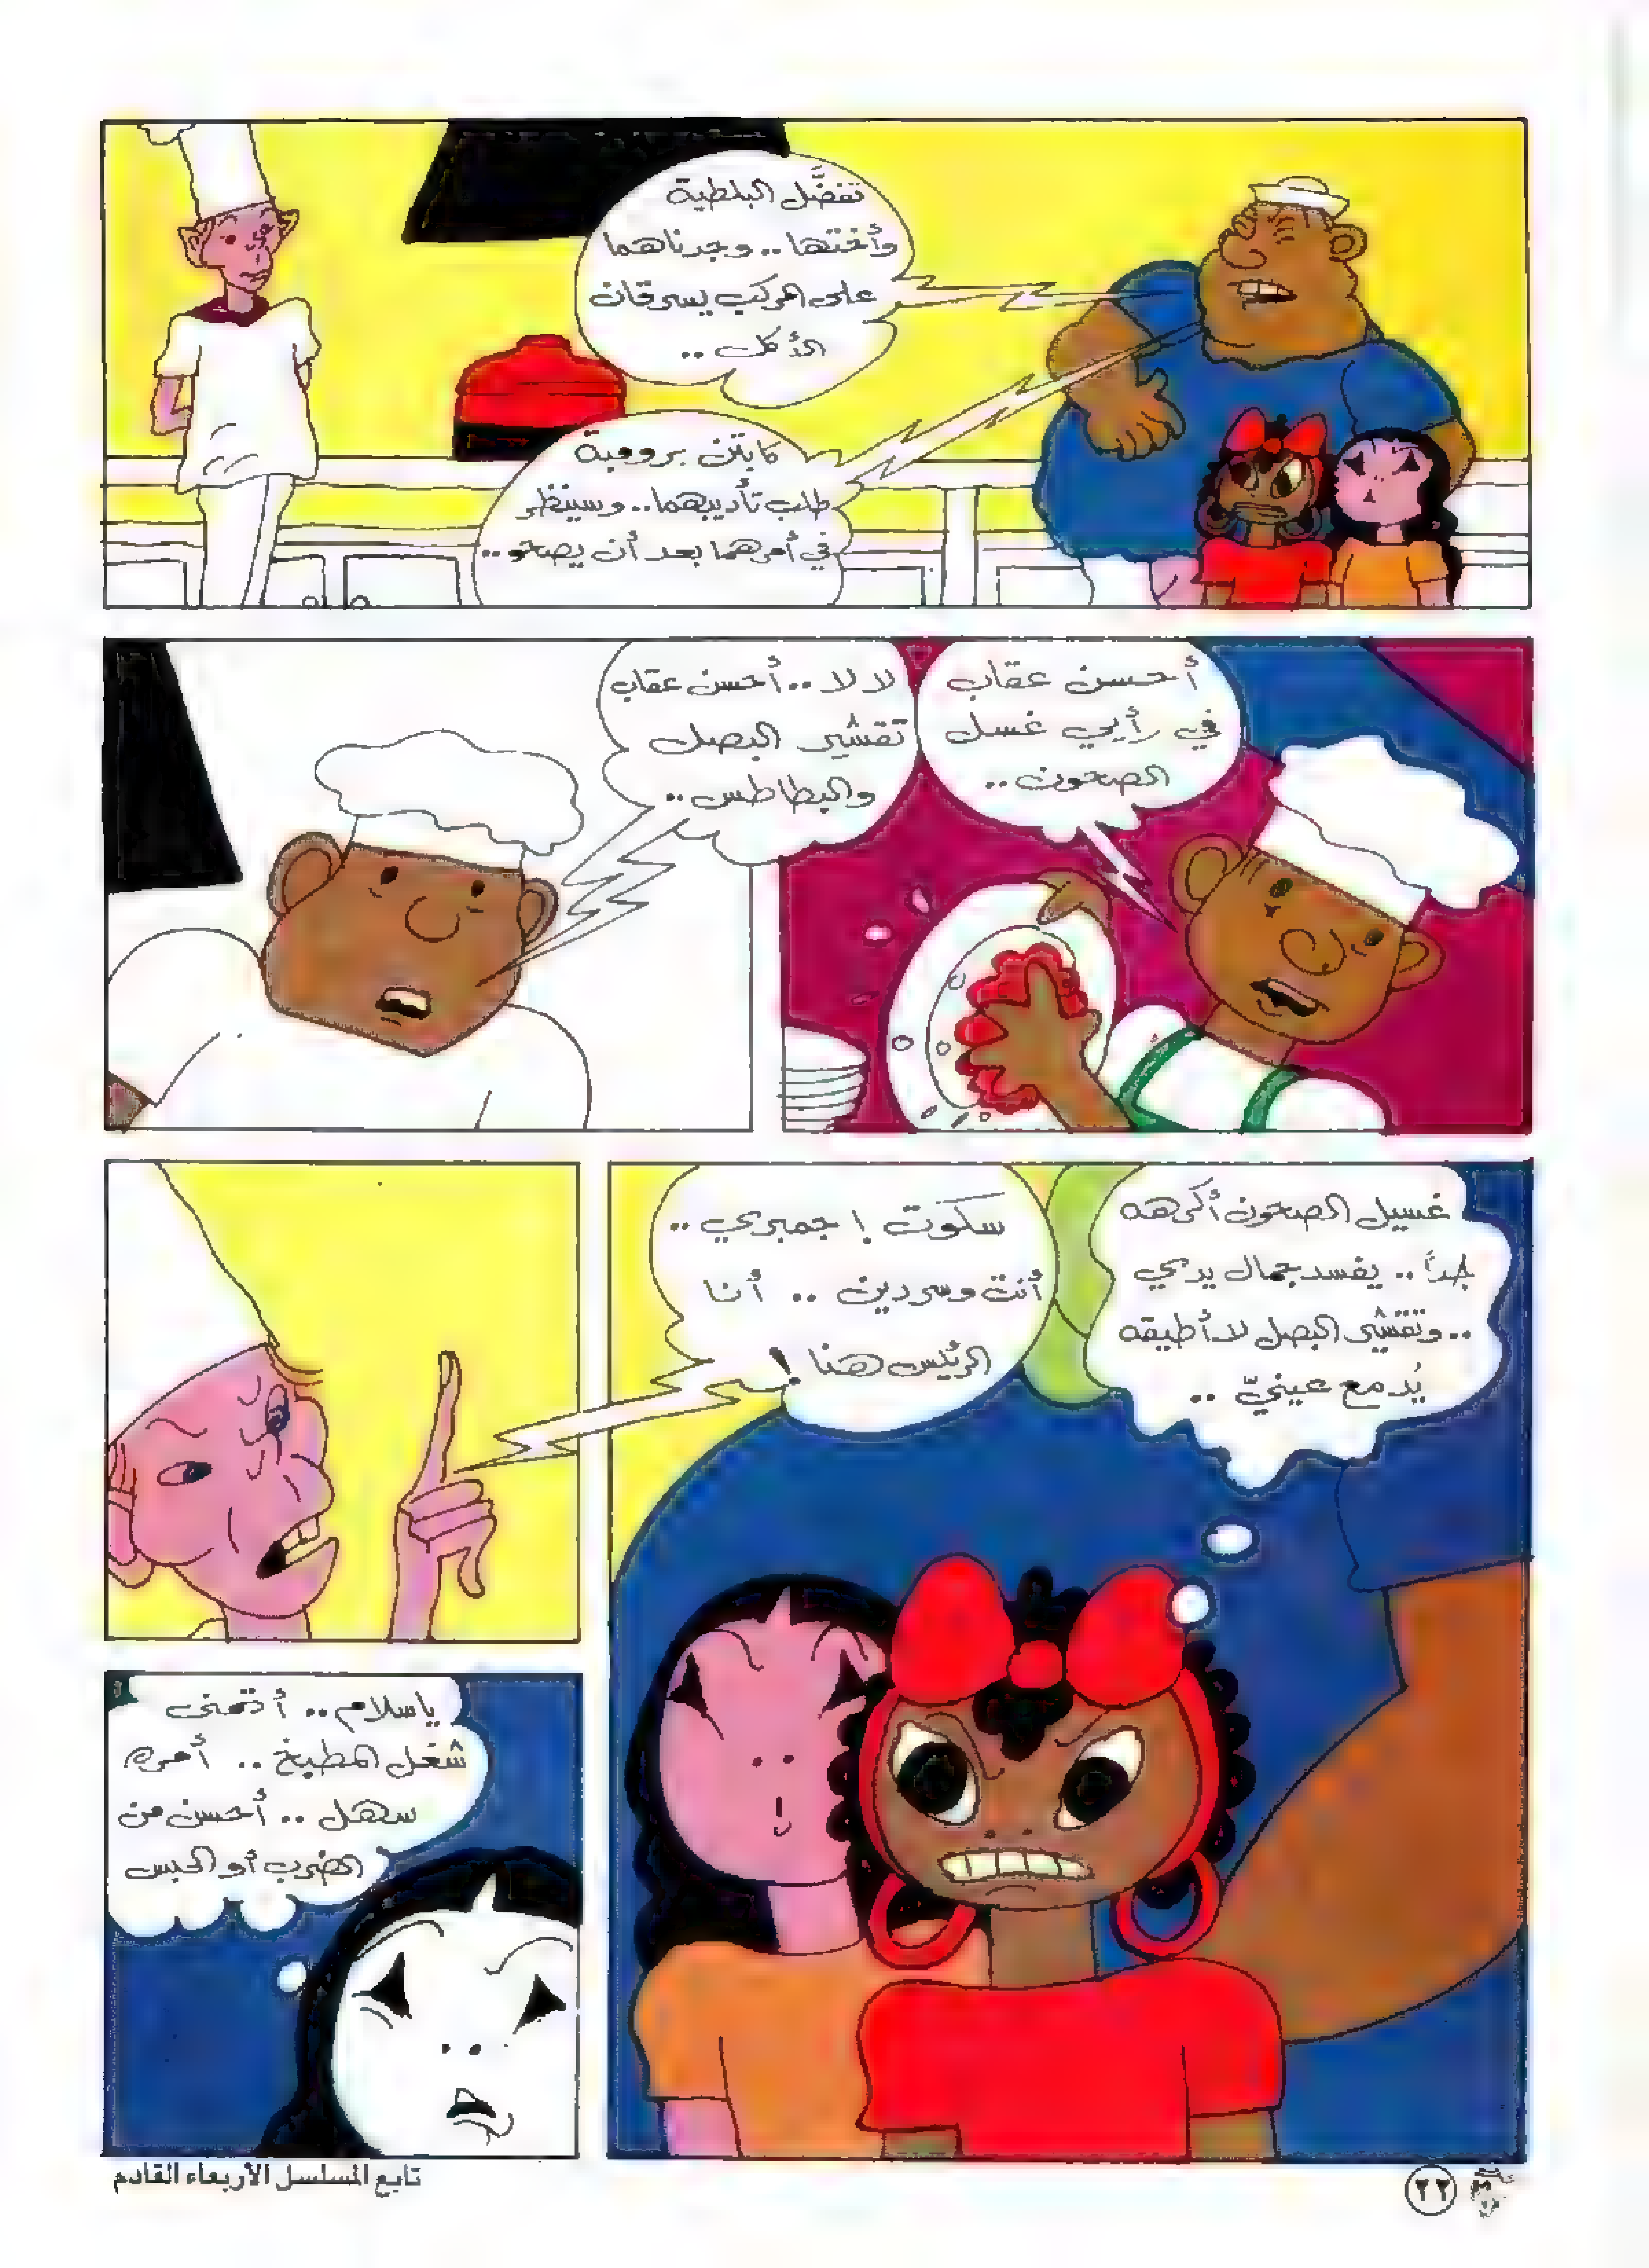 تفضَّل البلطية
وأختها.. وجدناهما
على المركب يسرقان
الأكل ..
كابتن برومبة
طلب تأديبهما.. وسينظر
في أمرهما بعد أن يصحو..
أحسن عقاب
في رأيي غسل
الصحون..
لا لا.. أحسن عقاب
تقشير البصل
والبطاطس..
غسيل الصحون أكرهه
جداً.. يفسد جمال يدي
.. وتقشير البصل لا أطيقه
يُدمع عينيّ ..
سكوت ! جمبري ..
أنت وسردين .. أنا
الرئيس هنا !
ياسلام.. أتمنى
شغل المطبخ .. أمره
سهل .. أحسن من
الضرب أو الحبس
تابع المسلسل الأربعاء القادم
٢٢